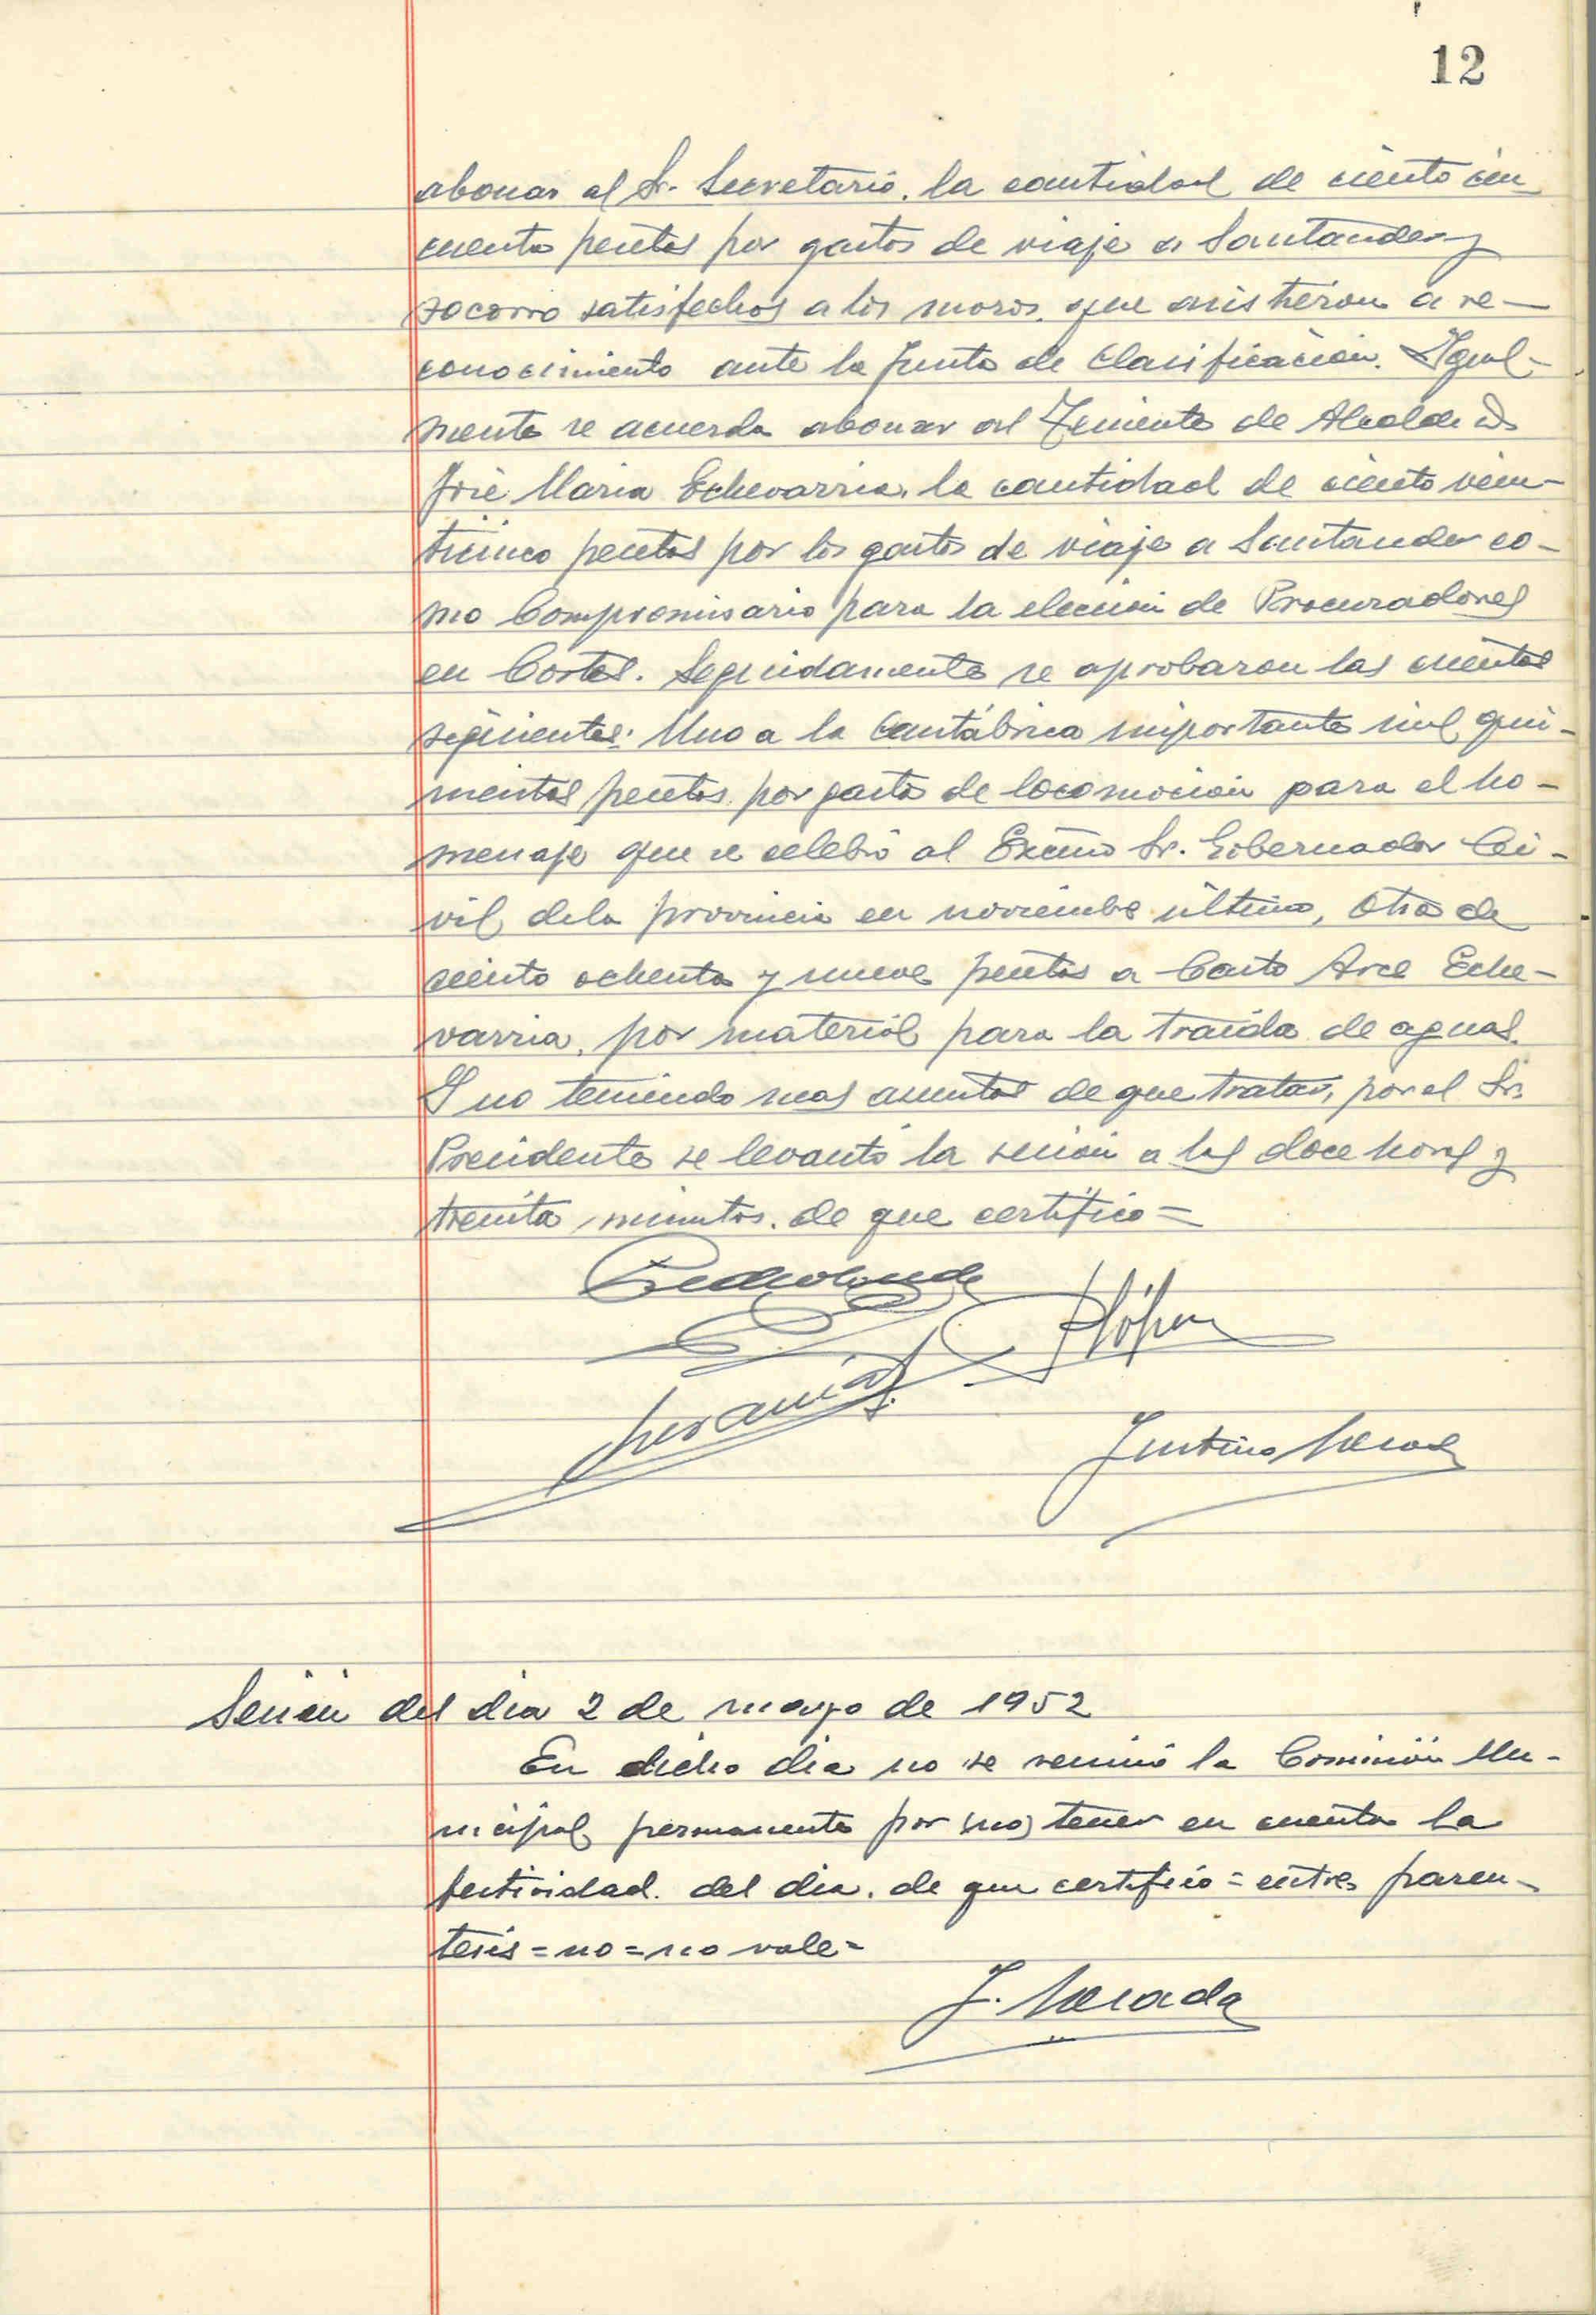 12
abonar al Sr. Secretario, la cantidad de ciento cin-
cuenta pesetas por gastos de viaje a Santander y
socorro satisfechos a los mozos que asistieron a re-
conocimiento ante la Junta de Clasificación. Igual-
mente se acuerda abonar al Teniente de Alcalde D.
José Maria Echevarria, la cantidad de ciento vein-
ticinco pesetas por los gastos de viaje a Santander co-
mo Compromisario para la elección de Procuradores
en Cortes. Seguidamente se aprobaron las cuentas
siguientes: Una a la Cantábrica importante mil qui-
nientas pesetas por gastos de locomoción para el ho-
menaje que se celebró al Excmo Sr. Gobernador Ci-
vil de la provincia en noviembre último, Otra de
ciento ochenta y nueve pesetas a Casto Arce Eche-
varria, por material para la traida de aguas.
Y no teniendo mas asuntos de que tratar, por el Sr.
Presidente se levantó la sesión a las doce horas y
treinta minutos. de que certifico=
López
Justino
Sesión del dia 2 de mayo de 1952
En dicho dia no se reunió la Comisión Mu-
nicipal permanente por (no) tener en cuenta la
festividad del dia. de que certifico = entre paren-
tesis = no = no vale =
J.